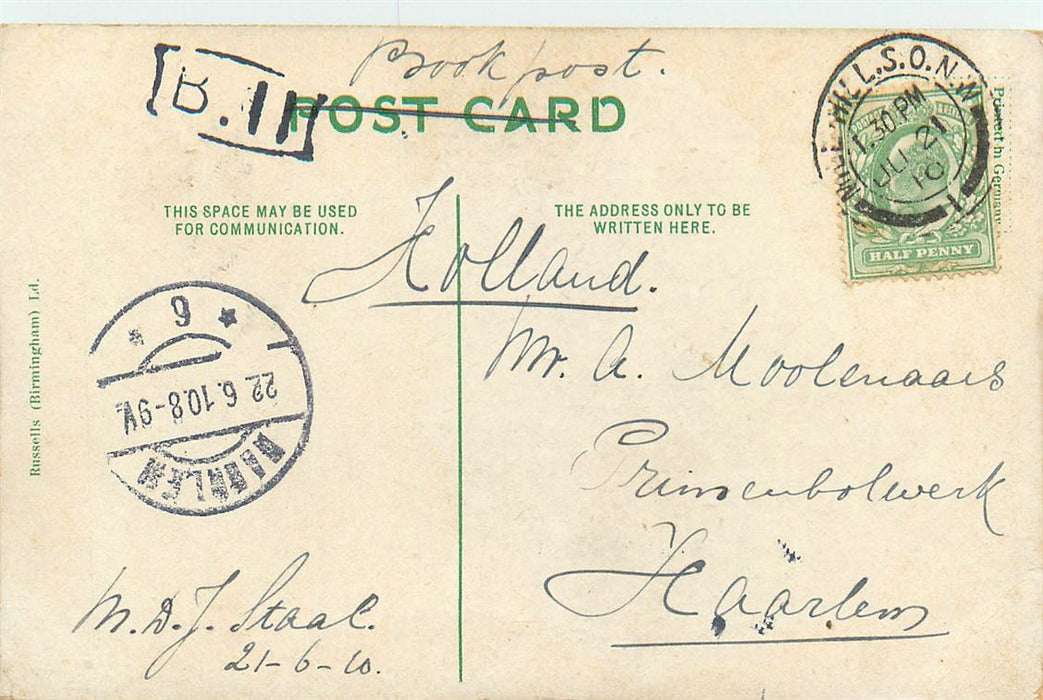 Book post.
[B.11]
POST CARD
MILL HILL.S.O.N.W.
1.30PM
JU 21
10
Printed in Germany
HALF PENNY
THIS SPACE MAY BE USED
FOR COMMUNICATION.
THE ADDRESS ONLY TO BE
WRITTEN HERE.
Holland.
Russells (Birmingham) Ld.
HAARLEM
22.6.10.8-9V.
6
Mr. A. Moolenaars
Prinsenbolwerk
Haarlem
M.D.J. Staal.
21-6-10.